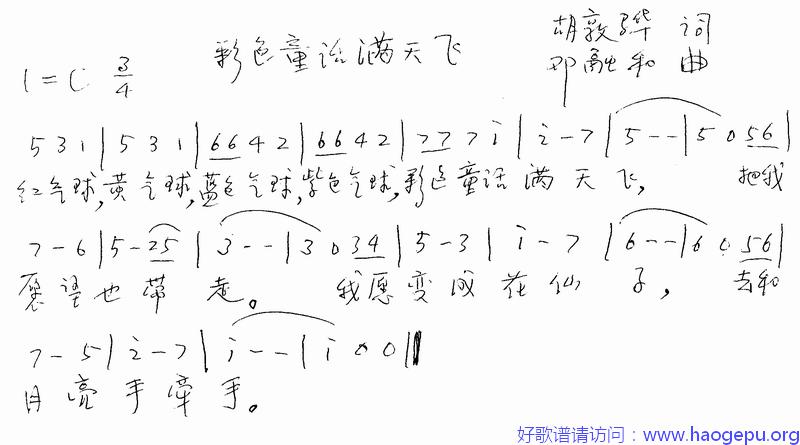 彩色童话满天飞
胡敦骅 词
1=C 3/4
邓融和 曲
5 3 1 | 5 3 1 | 66 4 2 | 66 4 2 | 77 7 i | 2̇ - 7 | 5 - - | 5 0 56 |
红气球,黄气球,蓝色气球,紫色气球,彩色童话满天飞, 把我
7 - 6 | 5 - 25 | 3 - - | 3 0 34 | 5 - 3 | i - 7 | 6 - - | 6 0 56 |
愿望也带走。 我愿变成花仙子, 去和
7 - 5 | 2̇ - 7 | i - - | i 0 0 ||
月亮手牵手。
好歌谱请访问:www.haogepu.org